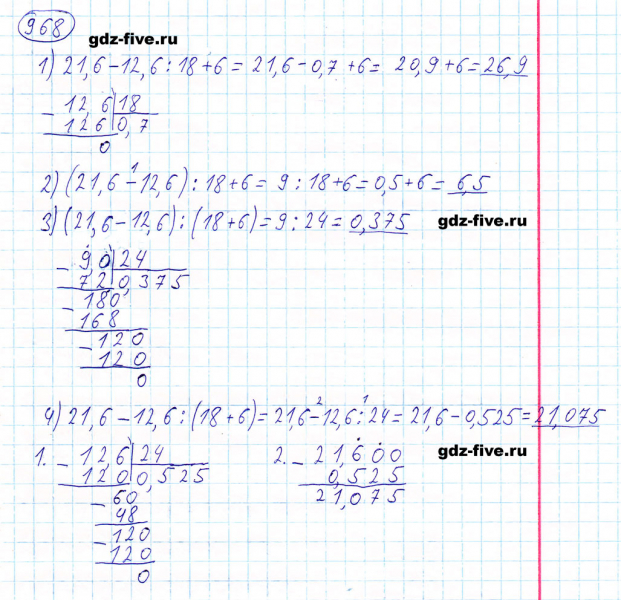 968
gdz-five.ru
1) 21,6-12,6:18+6= 21,6-0,7+6= 20,9+6=26,9
- 12,6|18
126|0,7
0
2) (21,6-12,6):18+6= 9:18+6=0,5+6= 6,5
3) (21,6-12,6):(18+6)=9:24=0,375
gdz-five.ru
- 9,0|24
72|0,375
- 180
168
- 120
120
0
4) 21,6-12,6:(18+6)= 21,6-12,6:24= 21,6-0,525=21,075
gdz-five.ru
1. - 12,6|24
120|0,525
- 60
48
- 120
120
0
2. - 21,600
0,525
21,075